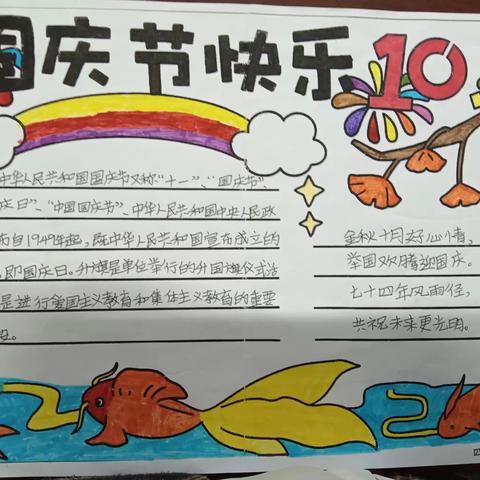 国庆节快乐
10
中华人民共和国国庆节又称“十一”、“国庆节”、
庆日”、“中国国庆节”、中华人民共和国中央人民政
布自1949年起,既中华人民共和国宣布成立的
,即国庆日。升旗是单位举行的升国旗仪式活
是进行爱国主义教育和集体主义教育的重要
段。
金秋十月好心情,
举国欢腾迎国庆。
七十四年风雨径,
共祝未来更光明。
四